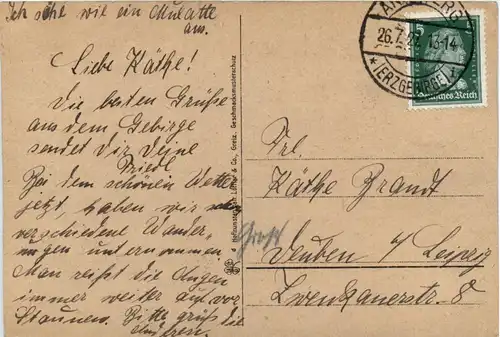 Ich sehe wie ein Mulatte
aus.
Liebe Käthe!
Die besten Grüße
aus dem Gebirge
sendet dir deine
Friedl
Bei dem schönen Wetter
jetzt, haben wir
verschiedene Wander-
ungen unternommen.
Man reißt die Augen
immer weiter auf vor
Staunen. Bitte grüß die
anderen.
Geschmacksmusterschutz
& Co., Greiz.
ANNABERG
26.7.27. 13-14
* (ERZGEBIRGE) *
5
Deutsches Reich
Frl.
Käthe Brandt
Groß
Deuben b/ Leipzig
Zwenkauerstr. 8